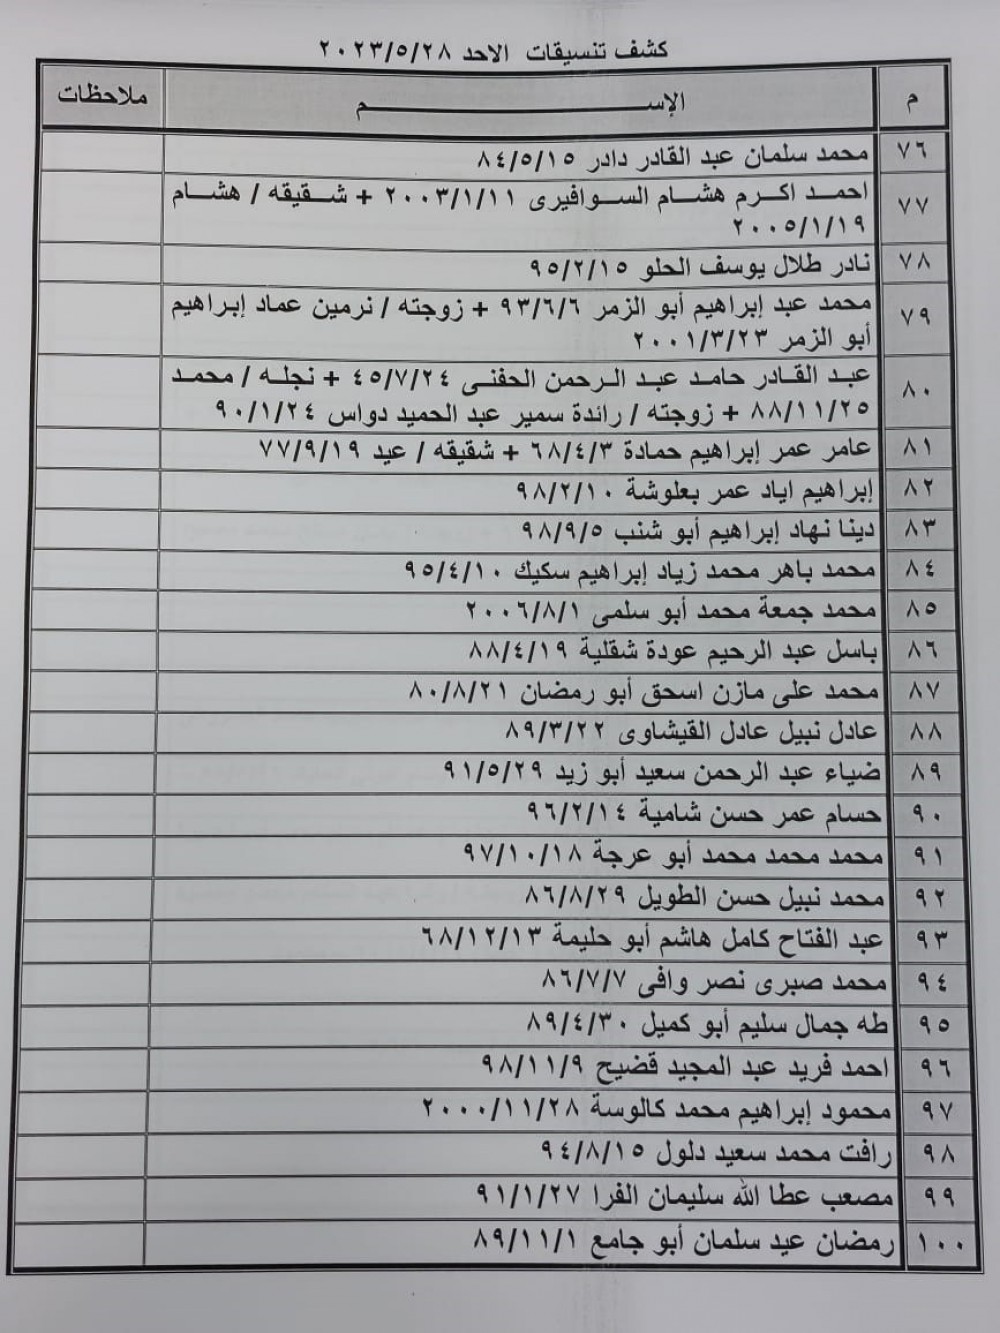 كشف تنسيقات الاحد ٢٠٢٣/٥/٢٨
م الإســــــم ملاحظات
٧٦ محمد سلمان عبد القادر دادر ٨٤/٥/١٥
٧٧ احمد اكرم هشام السوافيرى ٢٠٠٣/١/١١ + شقيقه / هشام
٢٠٠٥/١/١٩
٧٨ نادر طلال يوسف الحلو ٩٥/٢/١٥
٧٩ محمد عبد إبراهيم أبو الزمر ٩٣/٦/٦ + زوجته / نرمين عماد إبراهيم
أبو الزمر ٢٠٠١/٣/٢٣
٨٠ عبد القادر حامد عبد الرحمن الحفنى ٤٥/٧/٢٤ + نجله / محمد
٨٨/١١/٢٥ + زوجته / رائدة سمير عبد الحميد دواس ٩٠/١/٢٤
٨١ عامر عمر إبراهيم حمادة ٦٨/٤/٣ + شقيقه / عيد ٧٧/٩/١٩
٨٢ إبراهيم اياد عمر بعلوشة ٩٨/٢/١٠
٨٣ دينا نهاد إبراهيم أبو شنب ٩٨/٩/٥
٨٤ محمد باهر محمد زياد إبراهيم سكيك ٩٥/٤/١٠
٨٥ محمد جمعة محمد أبو سلمى ٢٠٠٦/٨/١
٨٦ باسل عبد الرحيم عودة شقلية ٨٨/٤/١٩
٨٧ محمد على مازن اسحق أبو رمضان ٨٠/٨/٢١
٨٨ عادل نبيل عادل القيشاوى ٨٩/٣/٢٢
٨٩ ضياء عبد الرحمن سعيد أبو زيد ٩١/٥/٢٩
٩٠ حسام عمر حسن شامية ٩٦/٢/١٤
٩١ محمد محمد محمد أبو عرجة ٩٧/١٠/١٨
٩٢ محمد نبيل حسن الطويل ٨٦/٨/٢٩
٩٣ عبد الفتاح كامل هاشم أبو حليمة ٦٨/١٢/١٣
٩٤ محمد صبرى نصر وافى ٨٦/٧/٧
٩٥ طه جمال سليم أبو كميل ٨٩/٤/٣٠
٩٦ احمد فريد عبد المجيد قضيح ٩٨/١١/٩
٩٧ محمود إبراهيم محمد كالوسة ٢٠٠٠/١١/٢٨
٩٨ رافت محمد سعيد دلول ٩٤/٨/١٥
٩٩ مصعب عطا الله سليمان الفرا ٩١/١/٢٧
١٠٠ رمضان عيد سلمان أبو جامع ٨٩/١١/١